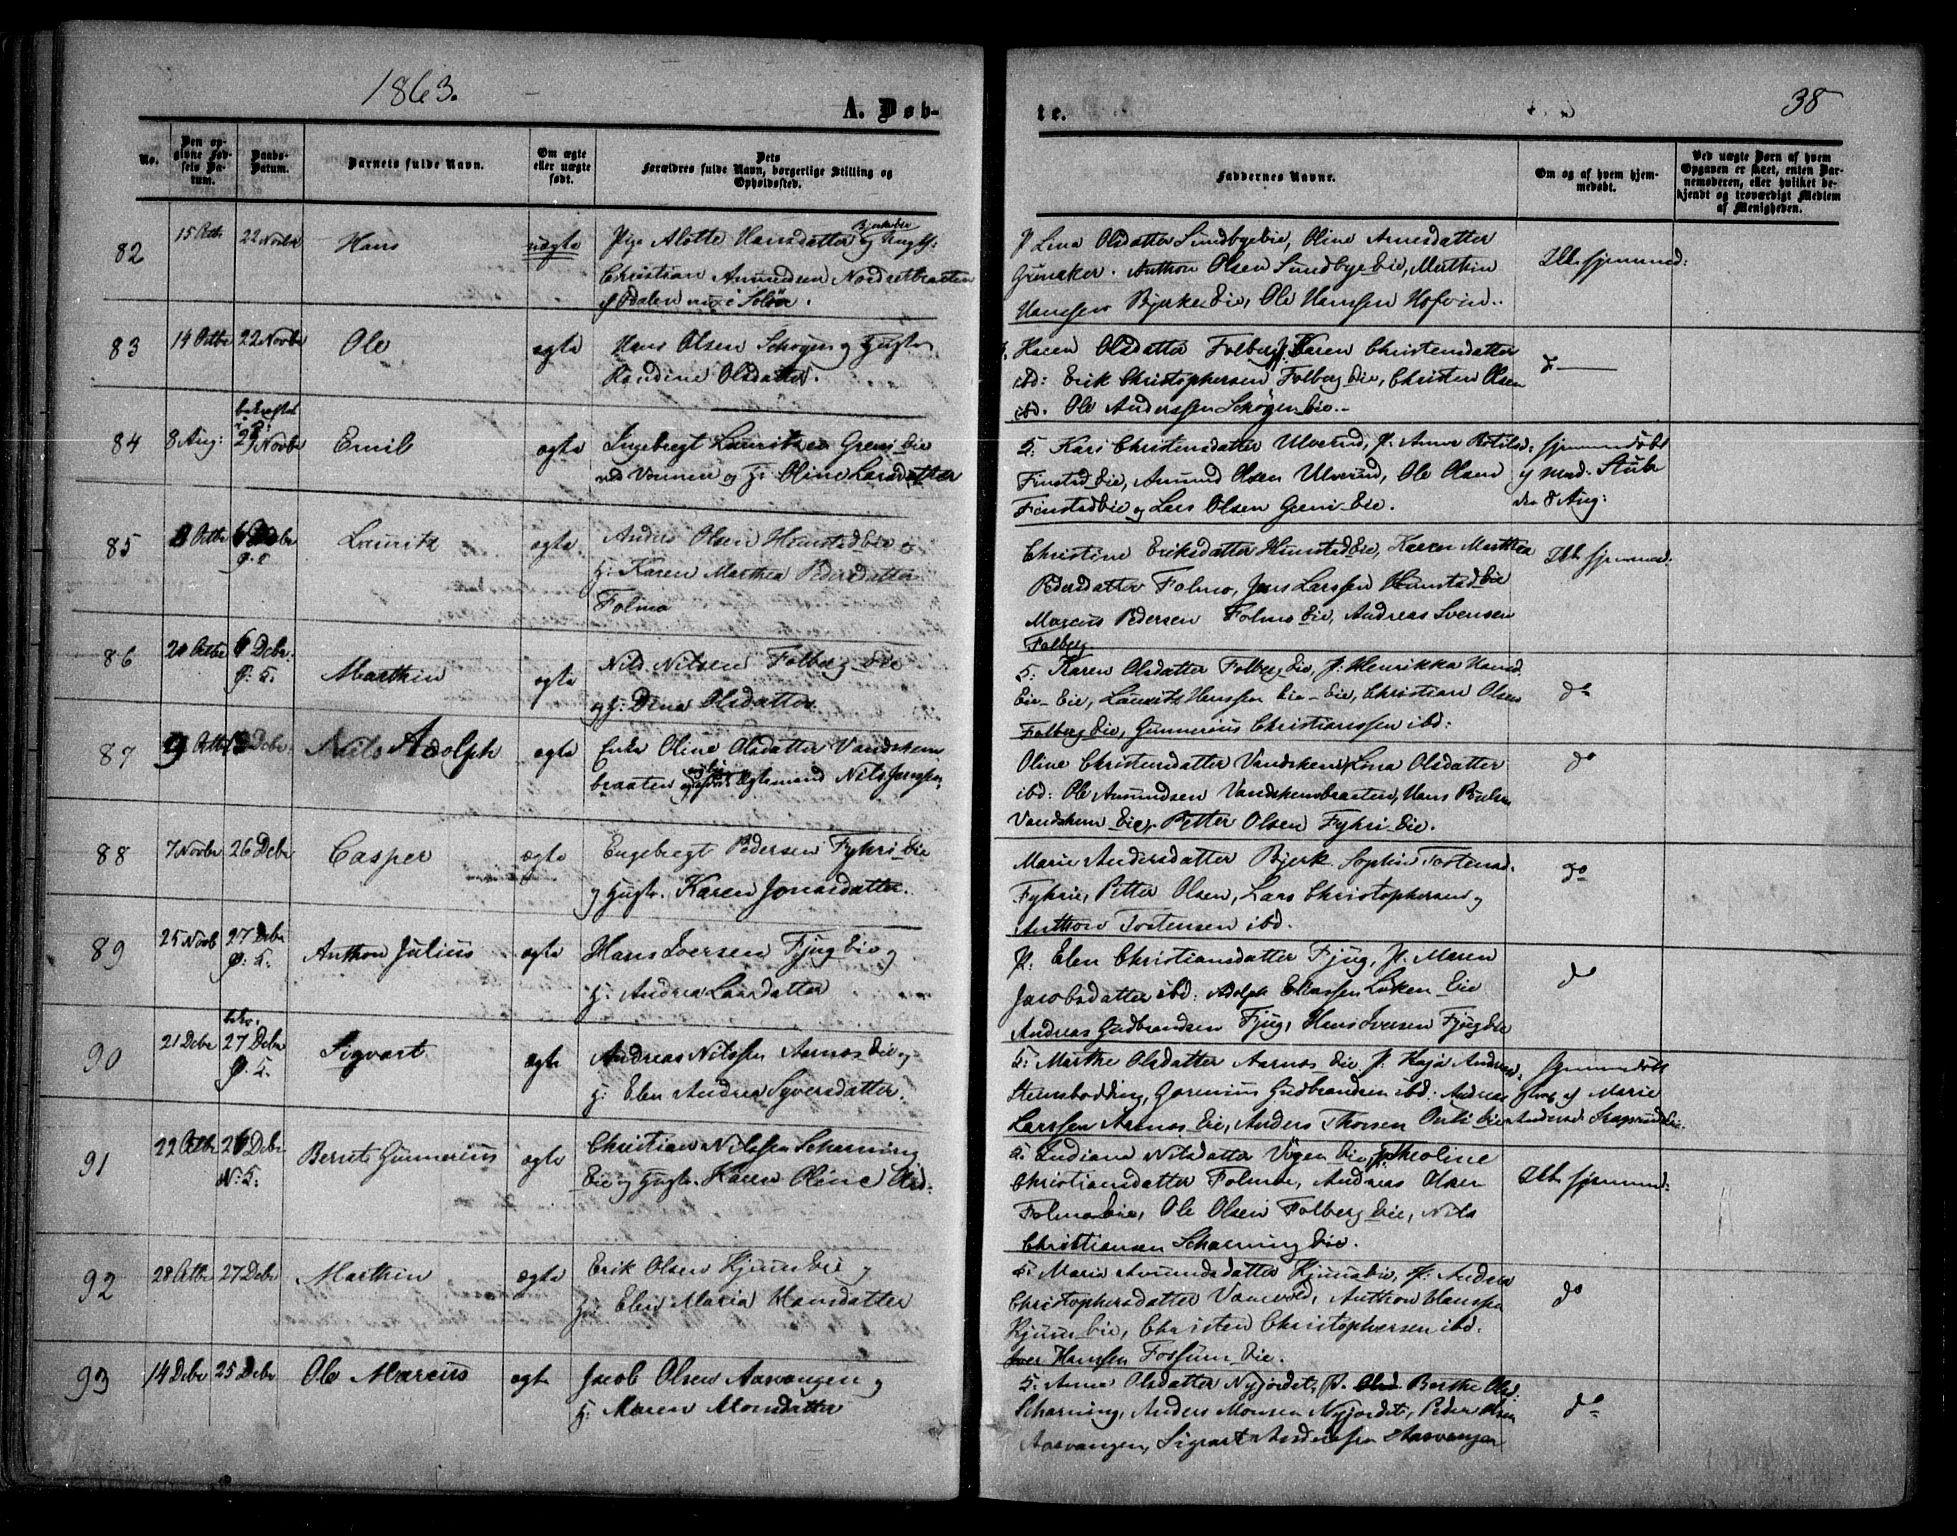 1863.
A. Døb-
te.
38
No.
Den op-
givne Fød-
sels Da-
tum.
Daabs-
Datum.
Barnets fulde Navn.
Om ægte
eller uægte
født.
Dets
Forældres fulde Navn, borgerlige Stilling og
Opholdssted.
Faddernes Navne.
Om og af hvem hjem-
medøbt.
Ved uægte Børn af hvem
Opgaven er skeet, enten Bar-
nemoderen, eller hvilket be-
kjendt og troværdigt Medlem
af Menigheden.
82 15 Octbr 22 Novbr Hans uægte Pige Alotte Hansdatter Bjerkeeie og Ungk:
Christian Amundsen Nordsetbraaten
Odalen nu i Solør.
P Lina Olsdatter Sundbyeeie, Oline Arnesdatter
Grinaker. Anthon Olsen Sundbyeeie, Mathin
Hanssen Bjerke Eie, Ole Hanssen Hofvin.
Ikke hjemmed:
83 14 Octbr 22 Novbr Ole ægte Hans Olsen Schøyen og Hustr
Randine Olsdatter.
Karen Olsdatter Folberg, P. Karen Christensdatter
ibd: Erik Christophersen Folberg Eie, Christen Olsen
ibd. Ole Anderssen Schøyen Eie.
do
84 8 Aug: 22 Novbr Emil ægte Ingebregt Lauritzen Greni Eie
ved Vormen og H: Oline Larsdatter
K: Kari Christensdatter Ulverud, P: Anne
Finstad Eie, Amund Olsen Ulverud, Ole Olsen
Finstad Eie og Lars Olsen Greni Eie.
hjemmedøbt
af Mad. Stub
den 8 Aug:
85 Octbr Debr Lauritz ægte Anders Olsen Hunstad Eie og
H: Karen Marthea Pedersdatter
Folmo
Christine Eriksdatter Hunstad Eie, Karen Marthea
Pedersdatter Folmo, Jens Larssen Hunstad Eie
Marcus Pedersen Folmo Eie, Andreas Svensen
Folberg
Ikke hjemmed:
86 20 Octbr 6 Debr. Marthin ægte Nils Nilsen Folberg Eie
og H: Dina Olsdatter
K: Karen Olsdatter Folberg Eie, P: Henrikka Hansd
Eie-Eie, Lauritz Hanssen Eie-Eie, Christian Olsen
Folberg Eie, Gunnerius Christianssen ibd:
do
87 9 Octbr Debr. Nils Adolph ægte Enke Oline Olsdatter Vandshem
braaten Ægtemand Nils Jenssen
Oline Christensdatter Vandshem, Lina Olsdatter
ibd: Ole Amundsen Vandshembraaten, Hans
Vandshem Eie, Petter Olsen Fyhri Eie.
do
88 7 Novbr 26 Debr Casper ægte Engebregt Pedersen Fyhri Eie
og Hustr. Karen Jonasdatter.
Marie Andersdatter Bjerk Sophie Tostensd.
Fyhrie, Petter Olsen, Lars Christophersen og
Anthon Tostensen ibd.
do
89 25 Novb 27 Debr Anthon Julius ægte Hans Iversen Fjug Eie og
H: Andrea Larsdatter
P: Elen Christiansdatter Fjug, P. Maren
Jacobsdatter ibd: Adolph Eliassen Løken Eie
Andreas Gudbrandsen Fjug, Hans Iversen Fjug Eie
do
90 21 Debr bekr. 27 Debr Sigvart ægte Andreas Nilssen Aarnæs Eie og
H: Elen Andrea Syversdatter.
K: Marthe Olsdatter Aarnæs Eie P: Kaja Andersd.
Gudbrandsen ibd: Andreas
Larssen Aarnæs Eie, Anders Thorsen Ouli Eie
hjemmedøbt
af Marie
Andersd.
91 22 Octbr 26 Debr Bernts Gunnerius ægte Christian Nilssen Scharning
Eie og Hustr. Karen Oline Olsd:
K: Indiana Nilsdatter Vøyen Eie, P: Theoline
Christiansdatter Folmo, Andreas Olsen
Folmo Eie, Ole Olsen Folberg Eie, Nils
Christiansen Scharning Eie.
Ikke hjemmed:
92 28 Octbr 27 Debr Marthin ægte Erik Olsen Kjuus Eie og
H: Elen Maria Hansdatter
K: Marie Amundsdatter Kjuus Eie, P: Andrea
Christophersdatter Vamvold, Anthon Hanssen
Kjuus Eie, Christen Christophersen ibd.
Iver Hanssen Fossum Eie.
do
93 14 Debr 25 Debr Ole Marcus ægte Jacob Olsen Aasvangen og
H: Maren Monsdatter
K: Anne Olsdatter Nyjordet, P. Berthe Olsd:
Scharning, Anders Monsen Nyjordet, Peder Olsen
Aasvangen, Sigvart Anderssen Aasvangen
do